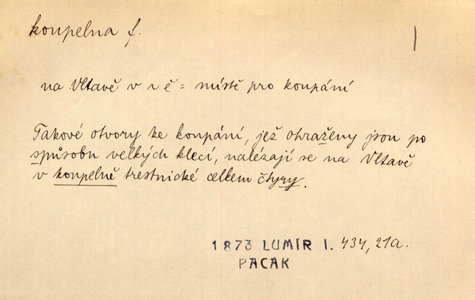 koupelna f.
na Vltavě v r ě = místě pro koupání
Takové otvory ke koupání, jež ohraženy jsou po
způsobu velkých klecí, nalézají se na Vltavě
v koupelně trestnické celkem čtyry.
1873 LUMÍR I. 434, 21a.
PACAK